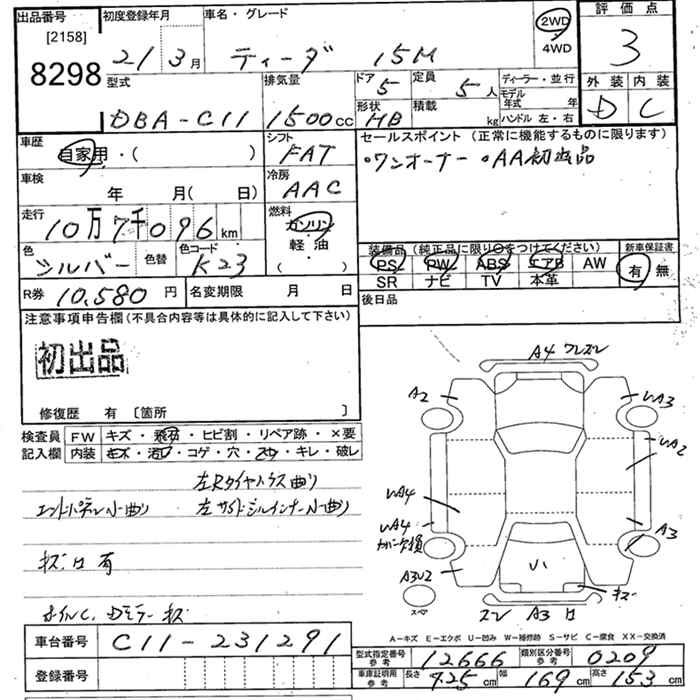 出品番号
[2158]
8298
初度登録年月
21 3月
車名・グレード
ティーダ 15M
2WD
4WD
評価点
3
外装 内装
D C
型式
DBA-C11
排気量
1500cc
ドア
5
定員
5人
形状
HB
積載
kg
ディーラー・並行
モデル年式 年
ハンドル 左・右
車歴
自家用・( )
シフト
FAT
セールスポイント (正常に機能するものに限ります)
・ワンオーナー ・AA初出品
車検
年 月( 日)
冷房
AAC
走行
10万7千096km
燃料
ガソリン
軽油
( ・ )
色
シルバー
色替
色コード
K23
装備品 (純正品に限り○をつけてください)
PS PW ABS エアB AW
SR ナビ TV 本革
新車保証書
有 無
R券 10,580円
名変期限 月 日
後日品
注意事項申告欄(不具合内容等は具体的に記入して下さい)
初出品
修復歴 有 〔箇所 〕
検査員記入欄
FW キズ・飛石・ヒビ割・リペア跡・×要
内装 キズ・汚れ・コゲ・穴・スレ・キレ・破レ
左Rタイヤハウス曲り
エンドパネル小曲り 左サイドシルインナー小曲り
キズ 有
A4
A2
A3
A2
A4
A4
A3
A3U2
キズ
A3
スペア
A-キズ E-エクボ U-凹み W-補修跡 S-サビ C-腐食 XX-交換済
車台番号 C11-231291
登録番号
型式指定番号 参考 12666
類別区分番号 参考 0209
車庫証明用 参考 長さ 425cm 幅 169cm 高さ 153cm